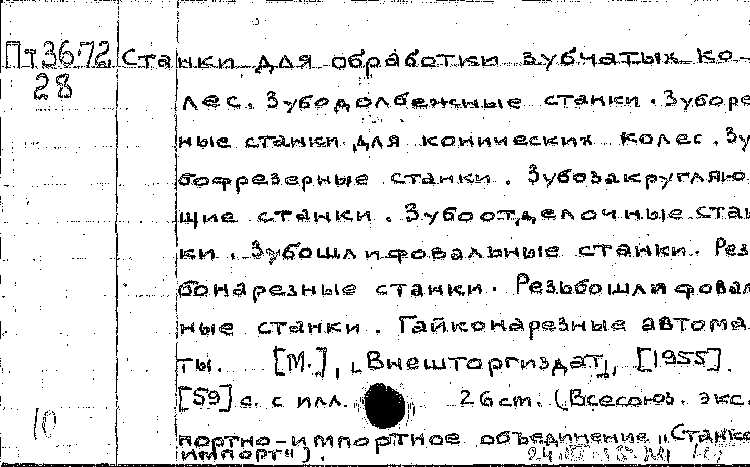 Пт36-72 Станки для обработки зубчатых ко-
28
лес. Зубодолбежные станки. Зуборе
ные станки для конических колес. Зу
бофрезерные станки. Зубозакругляю
щие станки. Зубоотделочные стан
ки. Зубошлифовальные станки. Рез
бонарезные станки. Резьбошлифовал
ные станки. Гайконарезные автома
ты. [М.], "Внешторгиздат", [1955].
[59] с. с илл. 26 см. (Всесоюз. экс.
10
портно-импортное объединение "Станко
импорт").